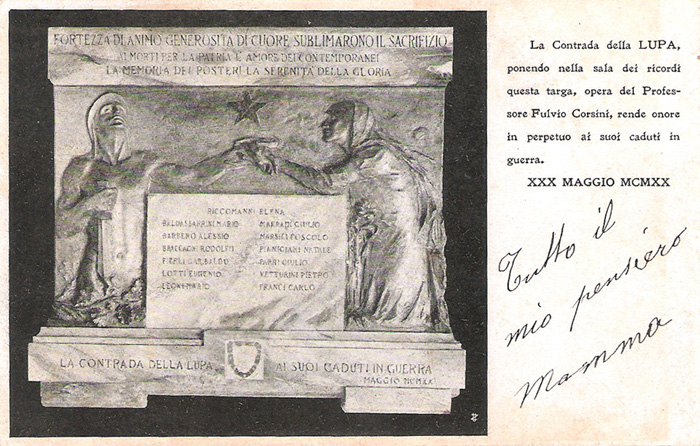 FORTEZZA DI ANIMO GENEROSITA DI CUORE SUBLIMARONO IL SACRIFIZIO
AI MORTI PER LA PATRIA L'AMORE DEI CONTEMPORANEI
LA MEMORIA DEI POSTERI LA SERENITA DELLA GLORIA
RICCOMANNI ELENA
BALDASSARRINI MARIO
BARBERO ALESSIO
BRACCAGNI RODOLFO
LOTTI EUGENIO
LEONI MARIO
MARRADI GIULIO
MARSILI FOSCOLO
PIANIGIANI NATALE
PARRI GIULIO
VETTURINI PIETRO
FRANCI CARLO
LA CONTRADA DELLA LUPA AI SUOI CADUTI IN GUERRA
MAGGIO MCMXX
La Contrada della LUPA,
ponendo nella sala dei ricordi
questa targa, opera del Profes-
sore Fulvio Corsini, rende onore
in perpetuo ai suoi caduti in
guerra.
XXX MAGGIO MCMXX
Tutto il
mio pensiero
Mamma